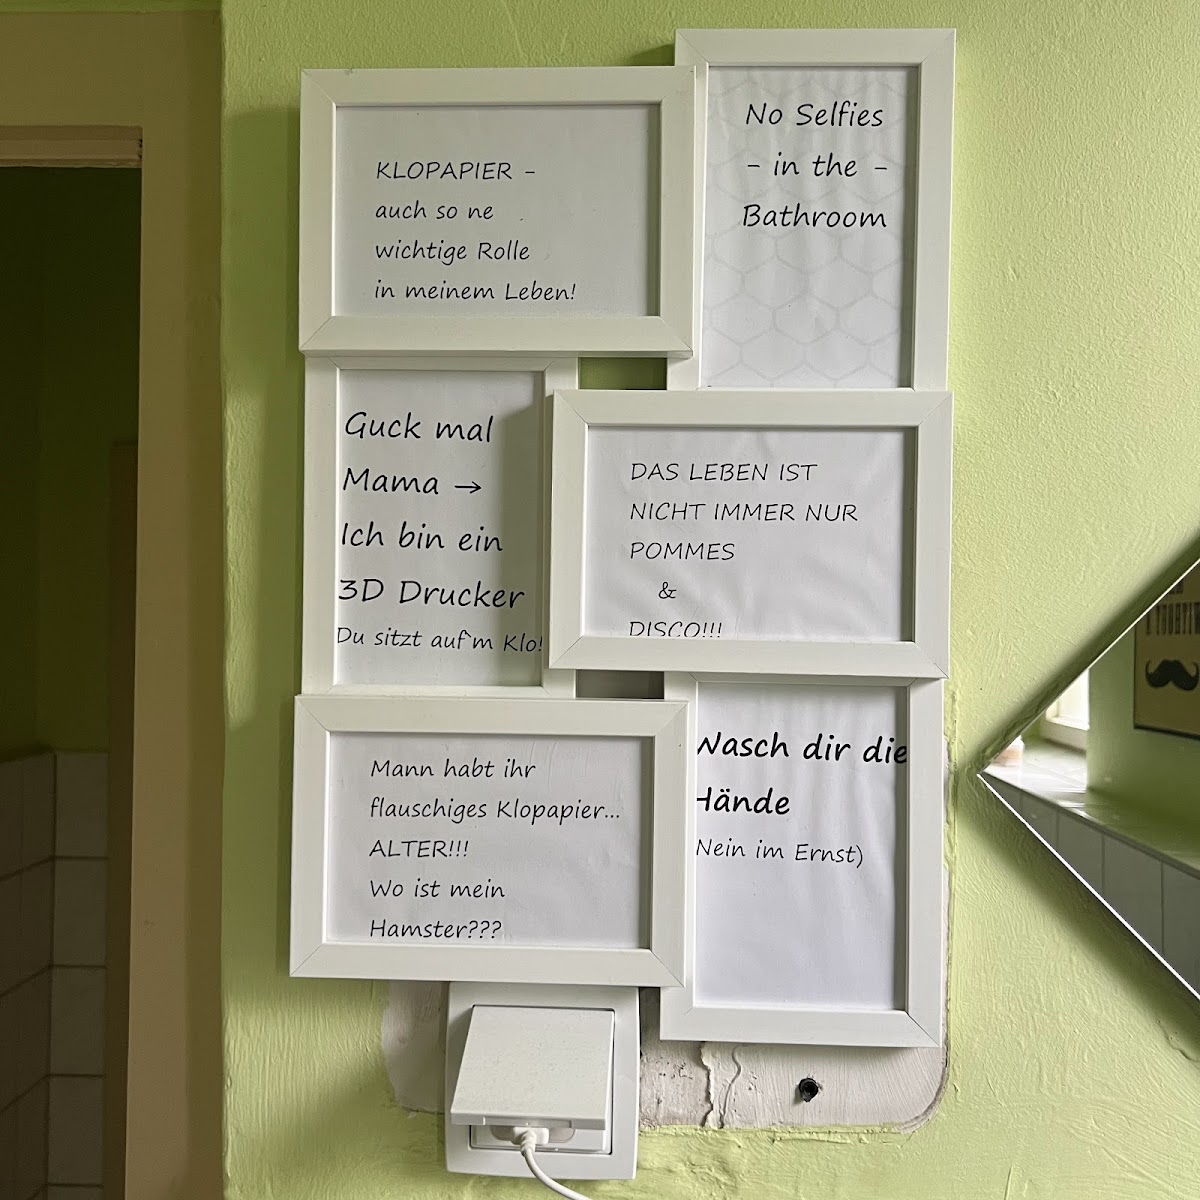 KLOPAPIER -
auch so ne
wichtige Rolle
in meinem Leben!
No Selfies
- in the -
Bathroom
Guck mal
Mama →
Ich bin ein
3D Drucker
Du sitzt auf`m Klo!
DAS LEBEN IST
NICHT IMMER NUR
POMMES
&
DISCO!!!
Mann habt ihr
flauschiges Klopapier...
ALTER!!!
Wo ist mein
Hamster???
Wasch dir die
Hände
Nein im Ernst)